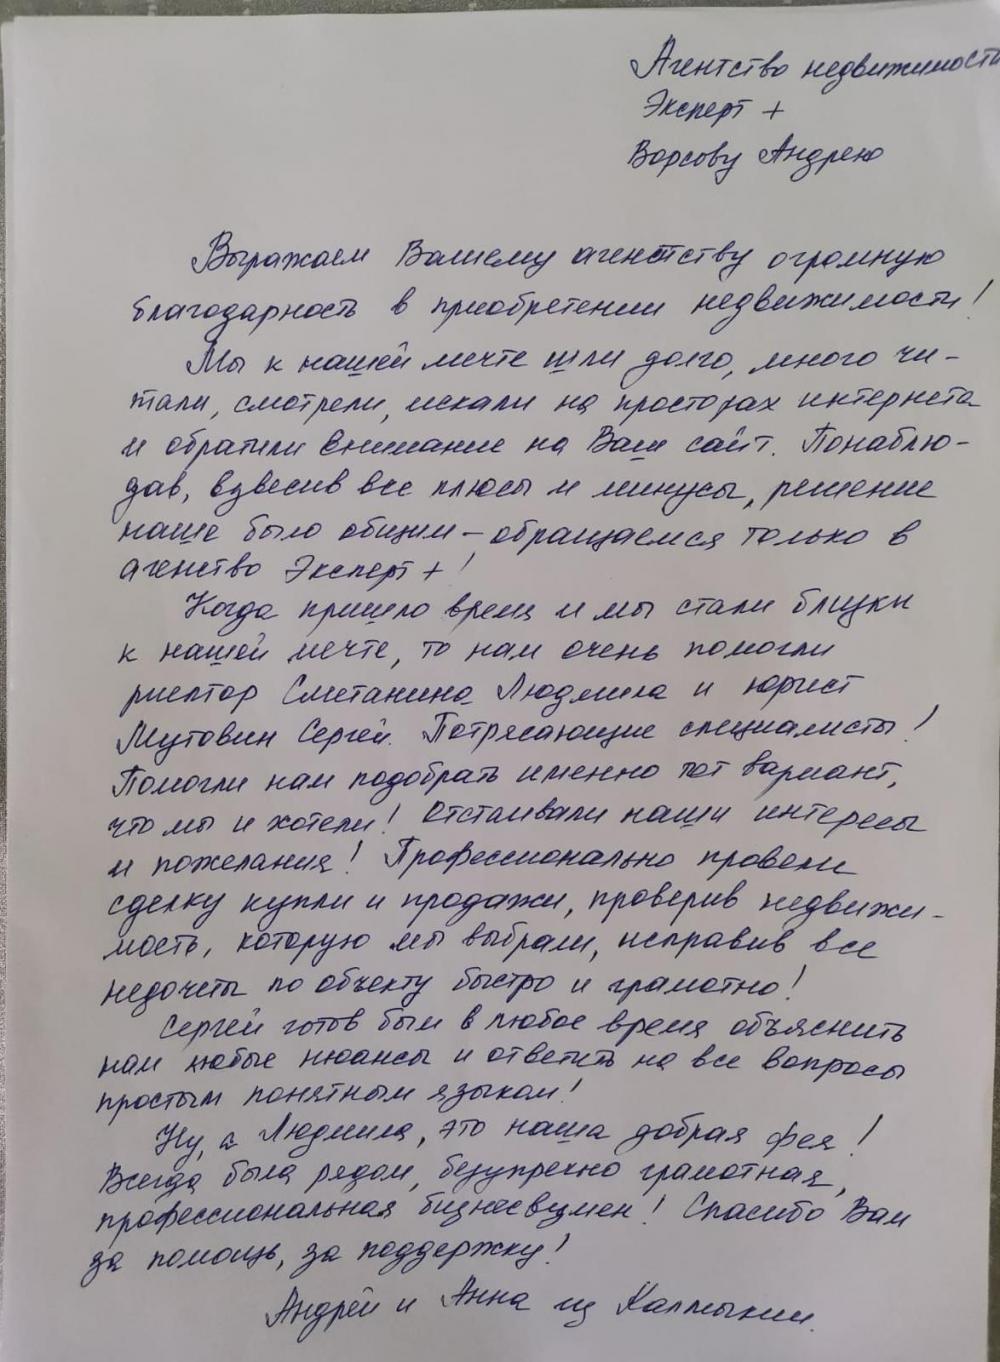 Агентство недвижимости
Эксперт +
Ворсову Андрею
Выражаем Вашему агентству огромную
благодарность в приобретении недвижимости!
Мы к нашей мечте шли долго, много чи-
тали, смотрели, искали на просторах интернета
и обратили внимание на Ваш сайт. Понаблю-
дав, взвесив все плюсы и минусы, решение
наше было общим – обращаемся только в
агенство Эксперт +!
Когда пришло время и мы стали близки
к нашей мечте, то нам очень помогли
риелтор Сметанина Людмила и юрист
Мутовин Сергей. Потрясающие специалисты!
Помогли нам подобрать именно тот вариант,
что мы и хотели! Отстаивали наши интересы
и пожелания! Профессионально провели
сделку купли и продажи, проверив недвижи-
мость, которую мы выбрали, исправив все
недочеты по объекту быстро и грамотно!
Сергей готов был в любое время объяснить
нам любые нюансы и ответить на все вопросы
простым понятным языком!
Ну, а Людмила, это наша добрая фея!
Всегда была рядом, безупречно грамотная,
профессиональная бизнесвумен! Спасибо Вам
за помощь, за поддержку!
Андрей и Анна из Калмыкии.